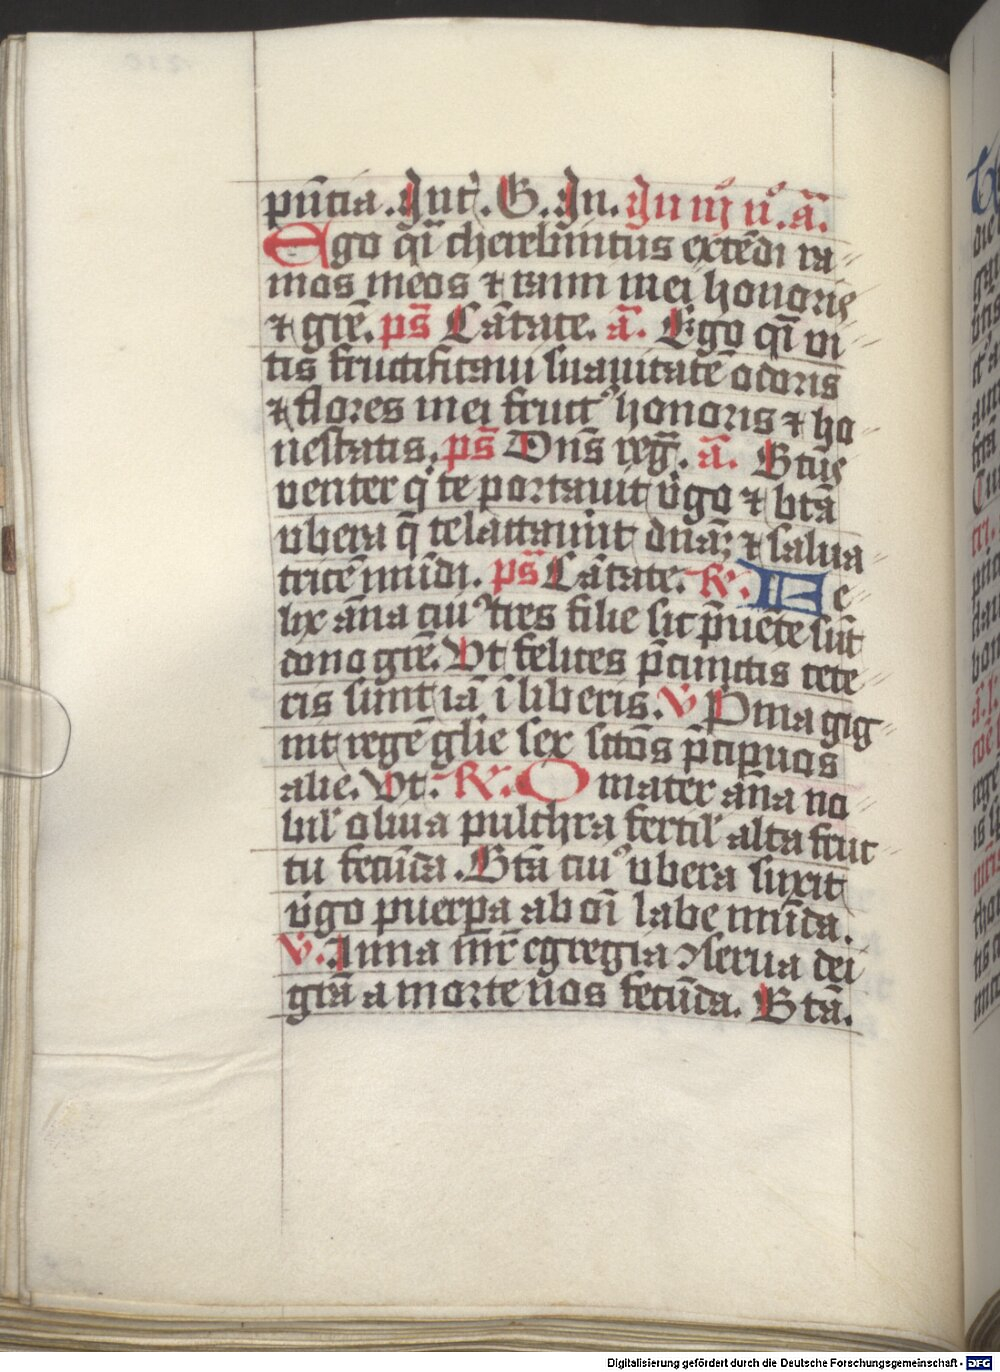 pn̄cia. Int̄. G. In. In iij n̊. a̅.
Ego qi̅ therebintus exte̅di ra
mos meos ⁊ rami mei honoris
⁊ gr̅e. ps̅ Ca̅tate. a̅. Ego qi̅ vi
tis fructificaui suauitate̅ odoris
⁊ flores mei fruct᷒ honoris ⁊ ho
nestatis. ps̅ Dn̅s reg̅. a̅. Bt̅us
venter q̇ te portauit v̇go ⁊ bt̅a
vbera q̅ te lactauint dn̅a; ⁊ salua
trice̅ mu̅di. ps̅ Ca̅tate. R̷. Fe
lix a̅na cui᷒ tres filie sic p̅uete su̅t
dono gr̅e. Vt felices p̅cunctis cete
ris sunt ia̅ i̅ liberis. V̅ P̍ma gig
nit rege̅ gl̅ie sex sc̅tos p̅cipuos
alie. Vt. R̷. O mater a̅na no
bil᷒ oliua pulchra fertil᷒ alta fruc
tu fecu̅da. Bt̅a cui᷒ vbera suxit
v̇go puerp̱a ab oi̅ labe mu̅da.
V̇. Anna mr̅ egregia ⁊ serua dei
gr̅a a morte nos fecu̅da. Bt̅a.
Digitalisierung gefördert durch die Deutsche Forschungsgemeinschaft - DFG